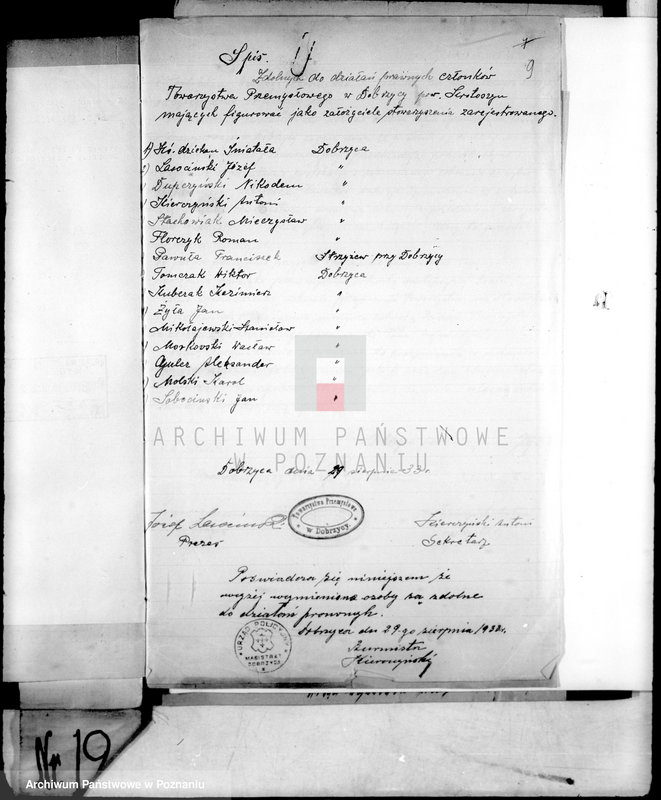 Spis.
9
Zdolnych do działań prawnych członków
Towarzystwa Przemysłowego w Dobrzycy pow. Krotoszyn
mających figurować jako założyciele stowarzyszenia zarejestrowanego.
1) Ks. dziekan Śniatała Dobrzyca
2) Lasociński Józef "
) Dupczyński Nikodem "
) Kierczyński Antoni "
Stachowiak Mieczysław "
Florczyk Roman "
Gawuła Franciszek Strzyżew przy Dobrzycy
) Tomczak Wiktor Dobrzyca
Kuberak Kazimierz "
) Żyła Jan "
Mikołajewski Stanisław "
) Morkowski Wacław "
Guler Aleksander "
) Molski Karol "
) Sobociński Jan "
ARCHIWUM PAŃSTWOWE
W POZNANIU
Dobrzyca dnia 29 sierpnia 33r.
Józef Lasociński
Towarzystwo Przemysłowe
w Dobrzycy
Kierczyński Antoni
Prezes
Sekretarz
Poświadcza się niniejszem że
wyżej wymienione osoby są zdolne
do działań prawnych.
Dobrzyca dn 29-go sierpnia 1933r.
URZĄD POLICYJNY
MAGISTRAT
DOBRZYCA
Burmistrz
Kierczyński
Nr 19
Archiwum Państwowe w Poznaniu